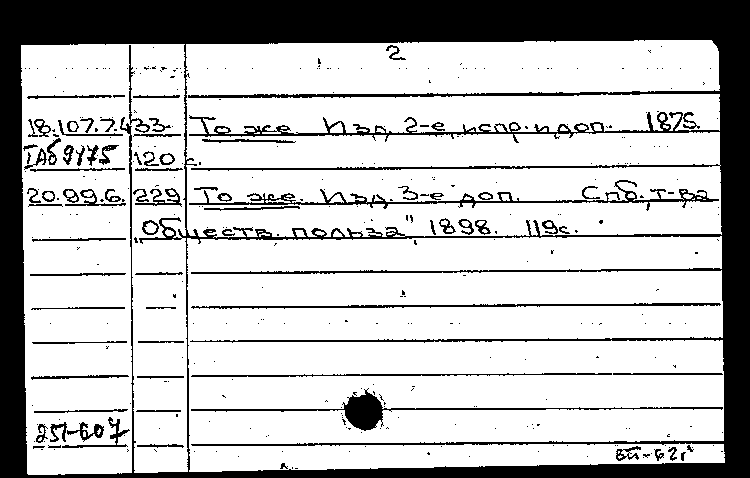 2
18.107.7.433. То же. Изд. 2-е, испр. и доп. 1875.
IАб9175 120 с.
20.99.6.229 То же. Изд. 3-е доп. Спб., т-ва
„Обществ. польза", 1898. 119с.
251-607